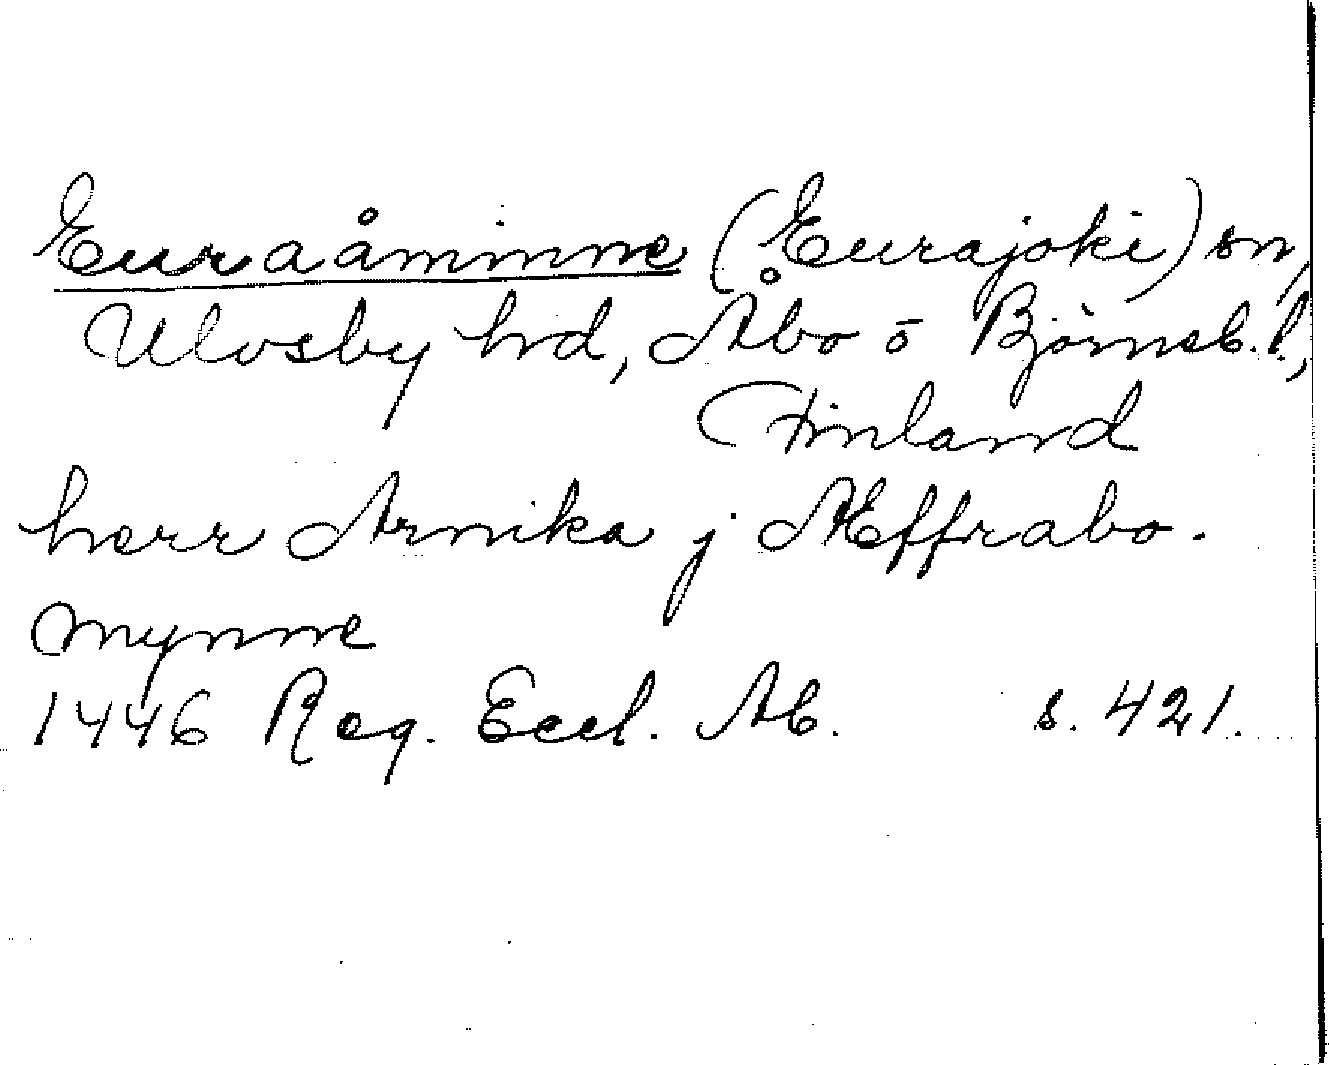 Euraåminne (Eurajoki) sn,
Ulvsby hd, Åbo o Björneb. l.,
Finland
herr Arnika j Æffrabo.
mynne
1446 Reg. Eccl. Ab. s. 421.